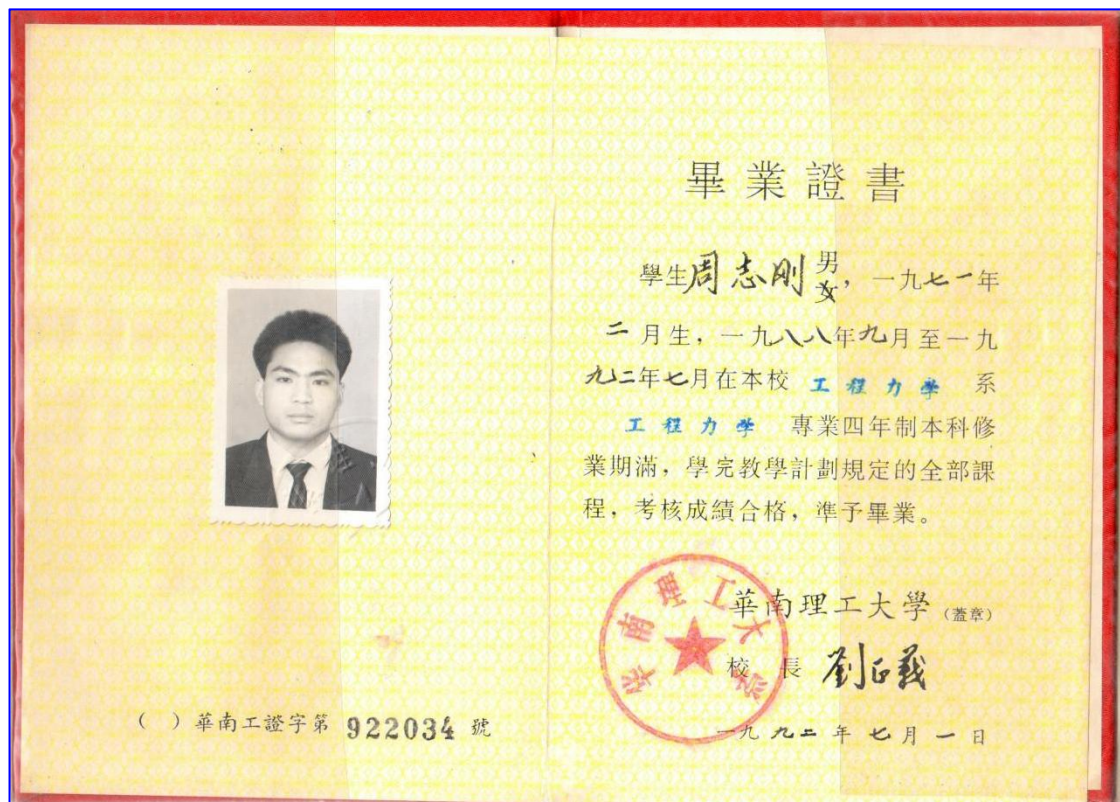 畢業證書
學生周志刚男女，一九七一年
二月生，一九八八年九月至一九
九二年七月在本校 工程力学 系
工程力学 專業四年制本科修
業期滿，學完教學計劃規定的全部課
程，考核成績合格，準予畢業。
華南理工大學（蓋章）
校長 劉正義
一九九二年七月一日
华南理工大学
（ ）華南工證字第 922034 號